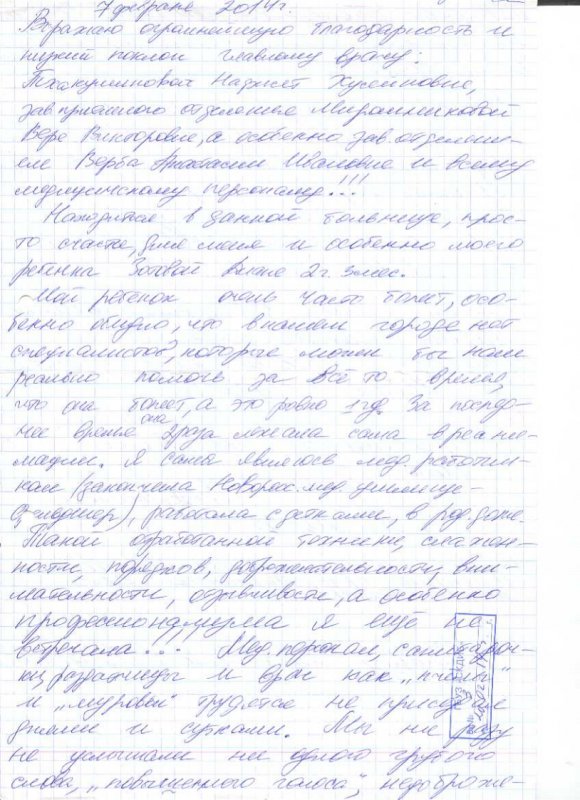 7 февраля 2014г.
Выражаю огромнейшую благодарность и
низкий поклон главному врачу:
Тхакушиновой Наджет Хусейновне,
зав. приемного отделения Мирошниковой
Вере Викторовне, а особенно зав. отделени-
ем Верба Анастасии Ивановне и всему
медицинскому персоналу!!!
Находиться в данной больнице, прос-
то счастье, для меня и особенно моего
ребенка 2 г. 3 мес.
Мой ребенок очень часто болеет, осо-
бенно обидно, что в нашем городе нет
специалистов, которые могли бы нам
реально помочь за всё то время,
что она болеет, а это ровно 1 год. За послед-
нее время она 2 раза лежала сама в реани-
мации. Я сама являюсь мед. работни-
ком (закончила Новорос. мед. училище-
), работала с детками, в род. доме.
Такой отработанной техники, слажен-
ности, порядков, доброжелательности, вни-
мательности, отзывчивости, а особенно
профессионализма я ещё не
встречала!!! Мед. персонал, санитароч-
ки, раздатчицы и врач как "пчелы"
и "муравьи" трудятся не приседая
днями и сутками. Мы ни разу
не услышали ни одного грубого
слова, "повышенного голоса", недоброже-